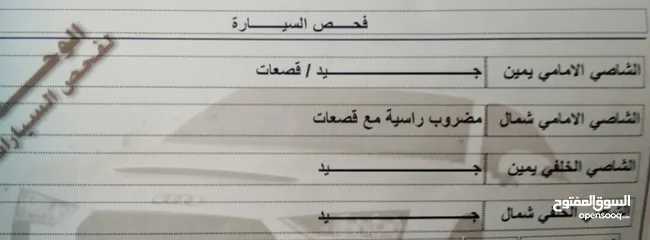 فحـص السيـــارة
الشاصي الامامي يمين جـــــــيد / قصعات
الشاصي الامامي شمال مضروب راسية مع قصعات
الشاصي الخلفي يمين جـــــــيد
الخلفي شمال جـــــــيد
لفحص السيارات
السوق المفتوح
opensooq.com